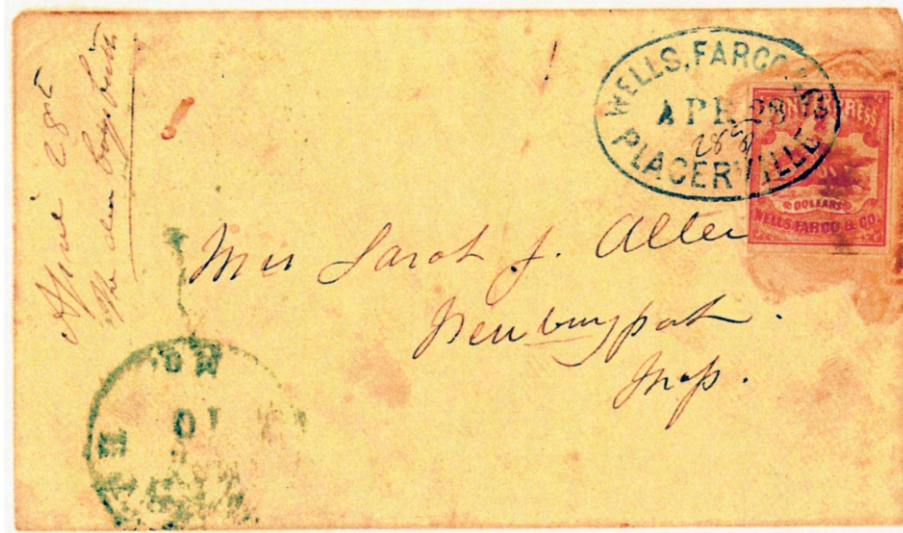 April 28th
WELLS, FARGO & CO
APR 28
PLACERVILLE
PONY EXPRESS
DOLLARS
WELLS FARGO & CO.
Mrs Sarah J.
Newburyport
Mass.
10